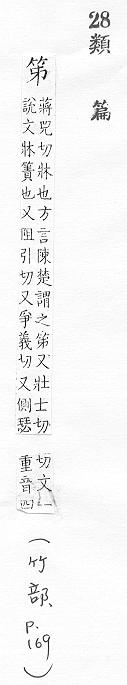 28類篇
笫
蔣兕切牀也方言陳楚謂之笫又壯士切
說文牀簀也又阻引切又爭義切又側瑟
切文一
重音四
(竹部 p.169)